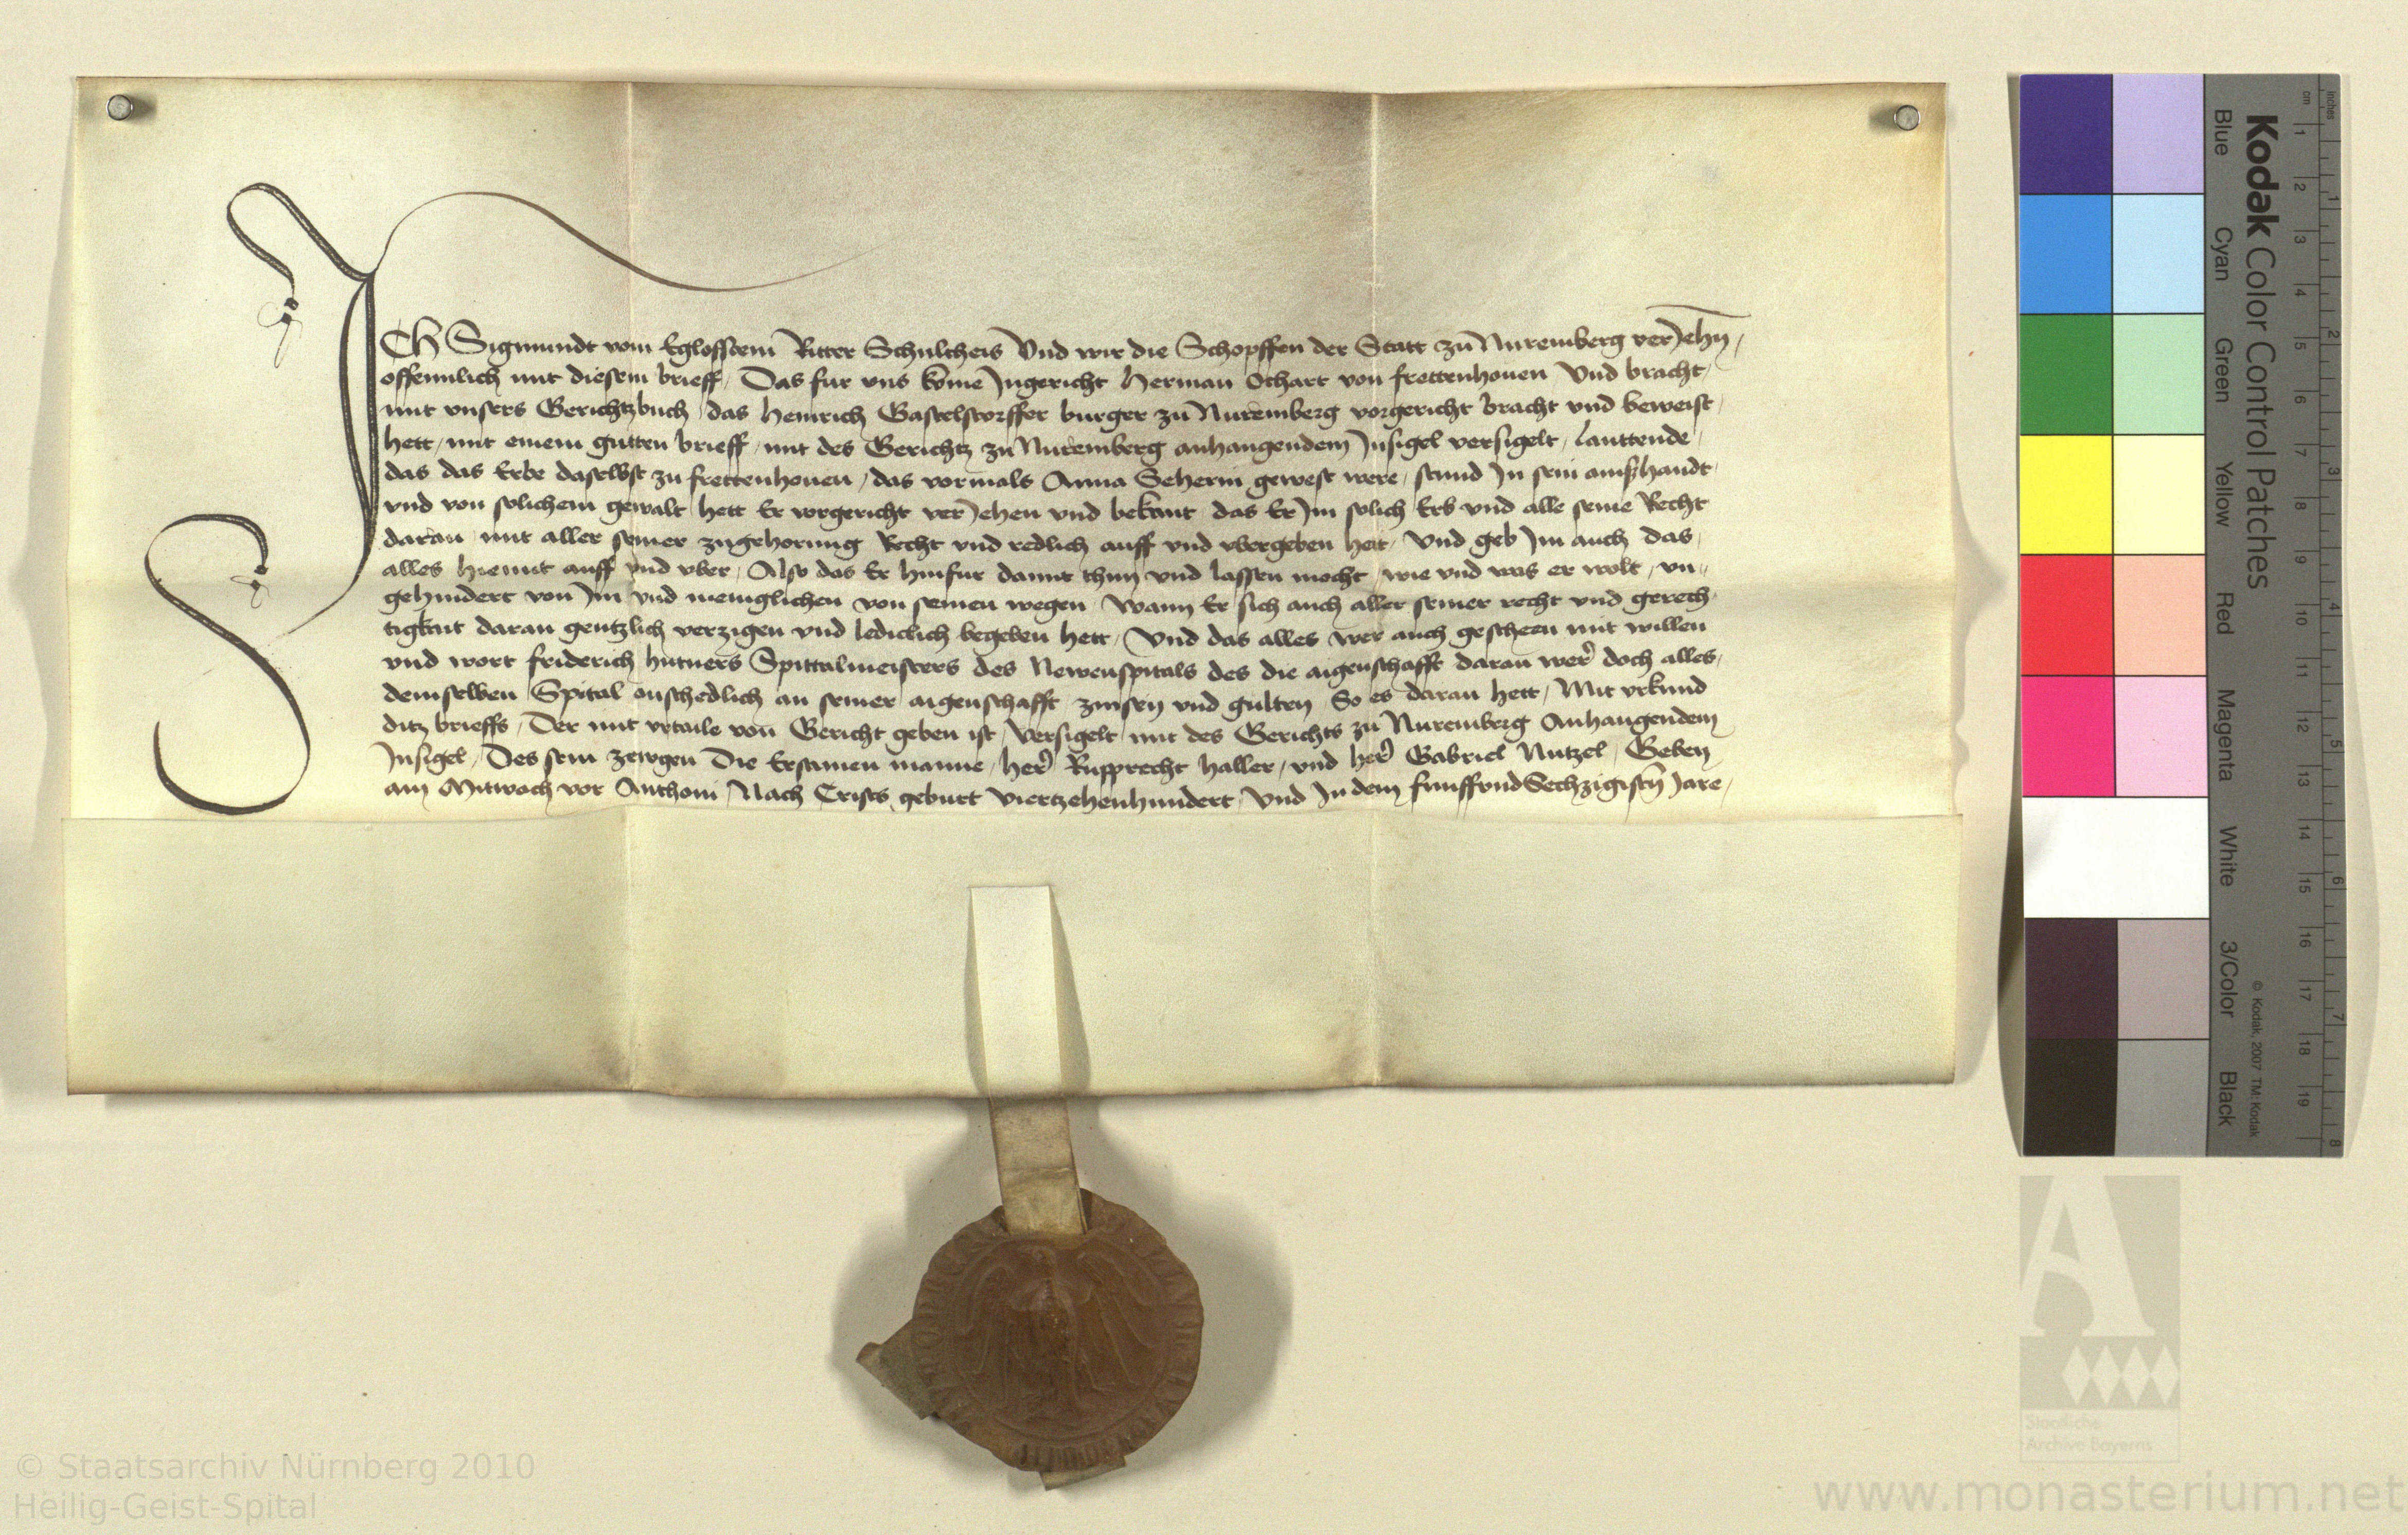 ICH Sigmundt vom Egloffstein Ritter Schultheis Vnd wir die Schopffen der Statt zu Nuremberg verJehn /
offennlich mit diesem brieff / Das fur vns kome Jngericht Herman Othart von frettenhouen Vnd bracht /
mit vnsers Gerichtzbuch / das Heinrich Gastelstorffer burger zu Nuremberg vorgericht bracht vnd beweist /
hett / mit einem gutten brieff / mit des Gerichtz zu Nuremberg anhangendem Jnsigel versigelt / lauttende /
das das Erbe daselbst zu frettenhouen / das vormals Anna Seherin gewest were / stund Jn sein handt
vnd von solichem gewalt hett Er vorgericht verJehen vnd bekant das Er Jm solich Erb vnd alle seine Recht
daran mit aller seiner zugehorung Recht vnd redlich auff vnd vbergeben hett / Vnd geb Jm auch das /
alles hiemit auff vnd vber / Also das Er hinfur damit thun vnd lassen mocht / wie vnd was er wolt / vn//
gehindert von Jm vnd meniglichen von seinen wegen / Wann Er sich auch aller seiner recht vnd gerech
tigkeit daran gentzlich verzigen vnd lediclich begeben hett / Vnd das alles wer auch gescheen mit willen
vnd wort friderich hutners Spittalmeisters des Newenspitals des die aigenschafft daran wer doch alles /
demselben Spital onschedlich an seiner aigenschafft zinsen vnd gulten So es daran hett / Mit vrkund
ditz brieffs / Der mit vrtaile von Gericht geben ist / Versigelt mit des Gerichts zu Nuremberg Anhangendem
Jnsigel / Des sein zewgen Die Ersamen manne / her Rupprecht Haller / vnd her Gabriel Nutzel / Geben
am Mitwoch vor Anthoni / Nach Crists geburt Viertzehenhundert / Vnd Jn dem funffvndSechzigisten Jare /
Kodak Color Control Patches
Blue Cyan Green Yellow Red Magenta White 3/Color Black
© Kodak, 2007 TM: Kodak
cm 1 2 3 4 5 6 7 8 9 10 11 12 13 14 15 16 17 18 19
inches 1 2 3 4 5 6 7 8
Staatliche
Archive Bayerns
© Staatsarchiv Nürnberg 2010
Heilig-Geist-Spital
www.monasterium.net